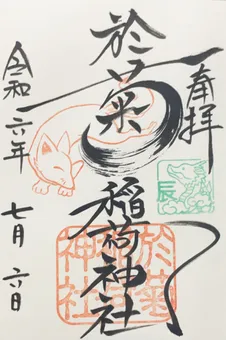 奉拝
辰
於菊
稲荷神社
於菊
稲荷
神社
令和六年
七月六日